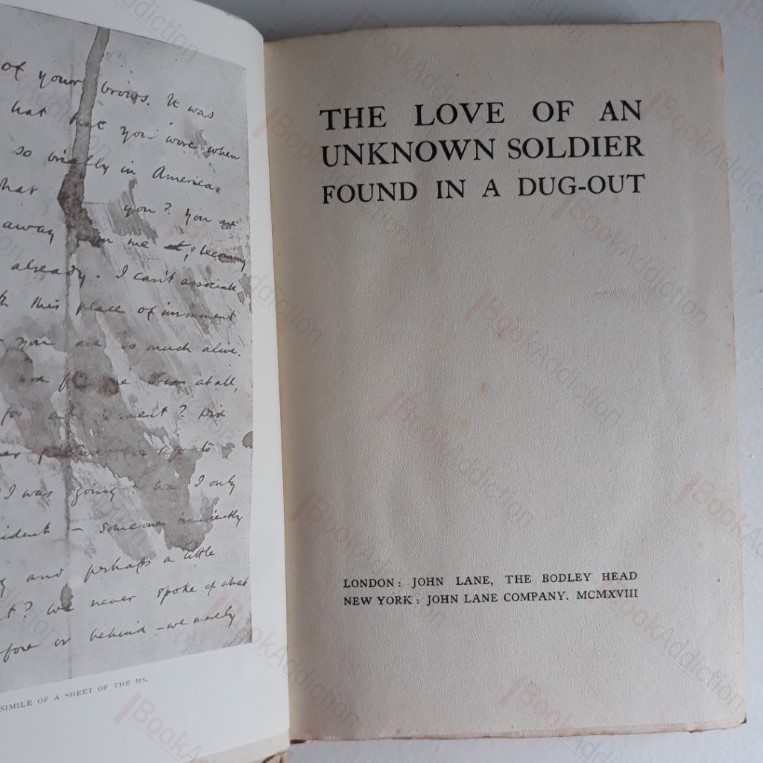 of your brows. It was
hat that you wore when
so briefly in America.
hat you? You
away from me
already. I can't associate
this place of imminent
you are so much alive.
at all,
for and ? Did
I was going? Was I only
ident — someone
and perhaps a little
t? We never spoke of what
fore or behind — we merely
SIMILE OF A SHEET OF THE MS.
THE LOVE OF AN
UNKNOWN SOLDIER
FOUND IN A DUG-OUT
LONDON: JOHN LANE, THE BODLEY HEAD
NEW YORK: JOHN LANE COMPANY. MCMXVIII
BookAddiction